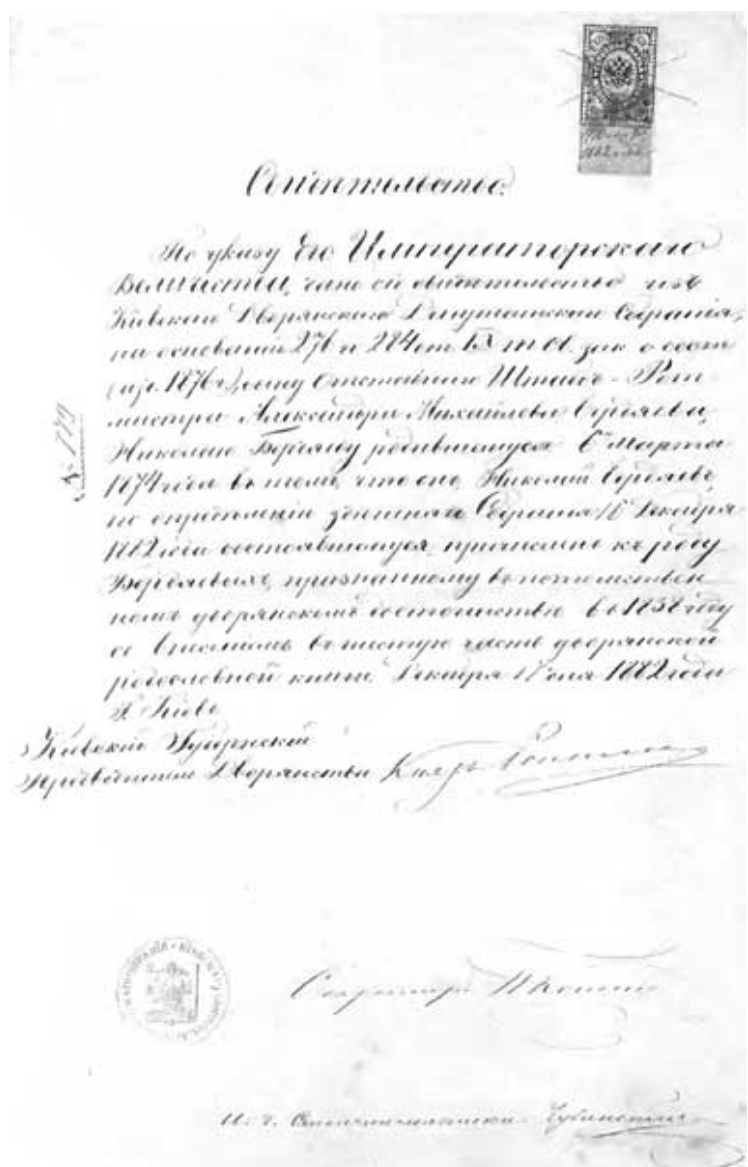 Свидетельство.
По указу Его Императорскаго
Величества, дано сіе свидетельство изъ
Кіевскаго Дворянскаго Депутатскаго Собранія,
на основаніи 276 и 284 ст. IX т. св. зак. о сост.
(изд. 1876 г.), сыну Отставнаго Штабсъ-Рот-
мистра Александра Михайлова Бердяева,
№ 779
Николаю Бердяеву родившемуся 6 Марта
1874 года въ томъ, что онъ, Николай Бердяевъ,
по определенію здешняго Собранія 18 Декабря
1882 года состоявшемуся, причисленъ къ роду
Бердяевыхъ, признанному въ потомствен-
номъ дворянскомъ достоинстве въ 1838 году
со внесеніемъ въ шестую часть дворянской
родословной книги. Декабря 18 дня 1882 года
г. Кіевъ
Кіевскій Губернскій
Предводитель Дворянства Князь
Секретарь
И. д.